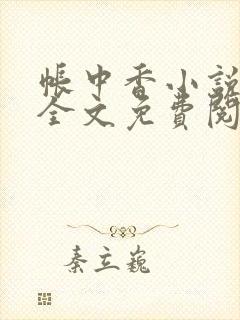 帳中香小說
全文免費閱
秦立巍